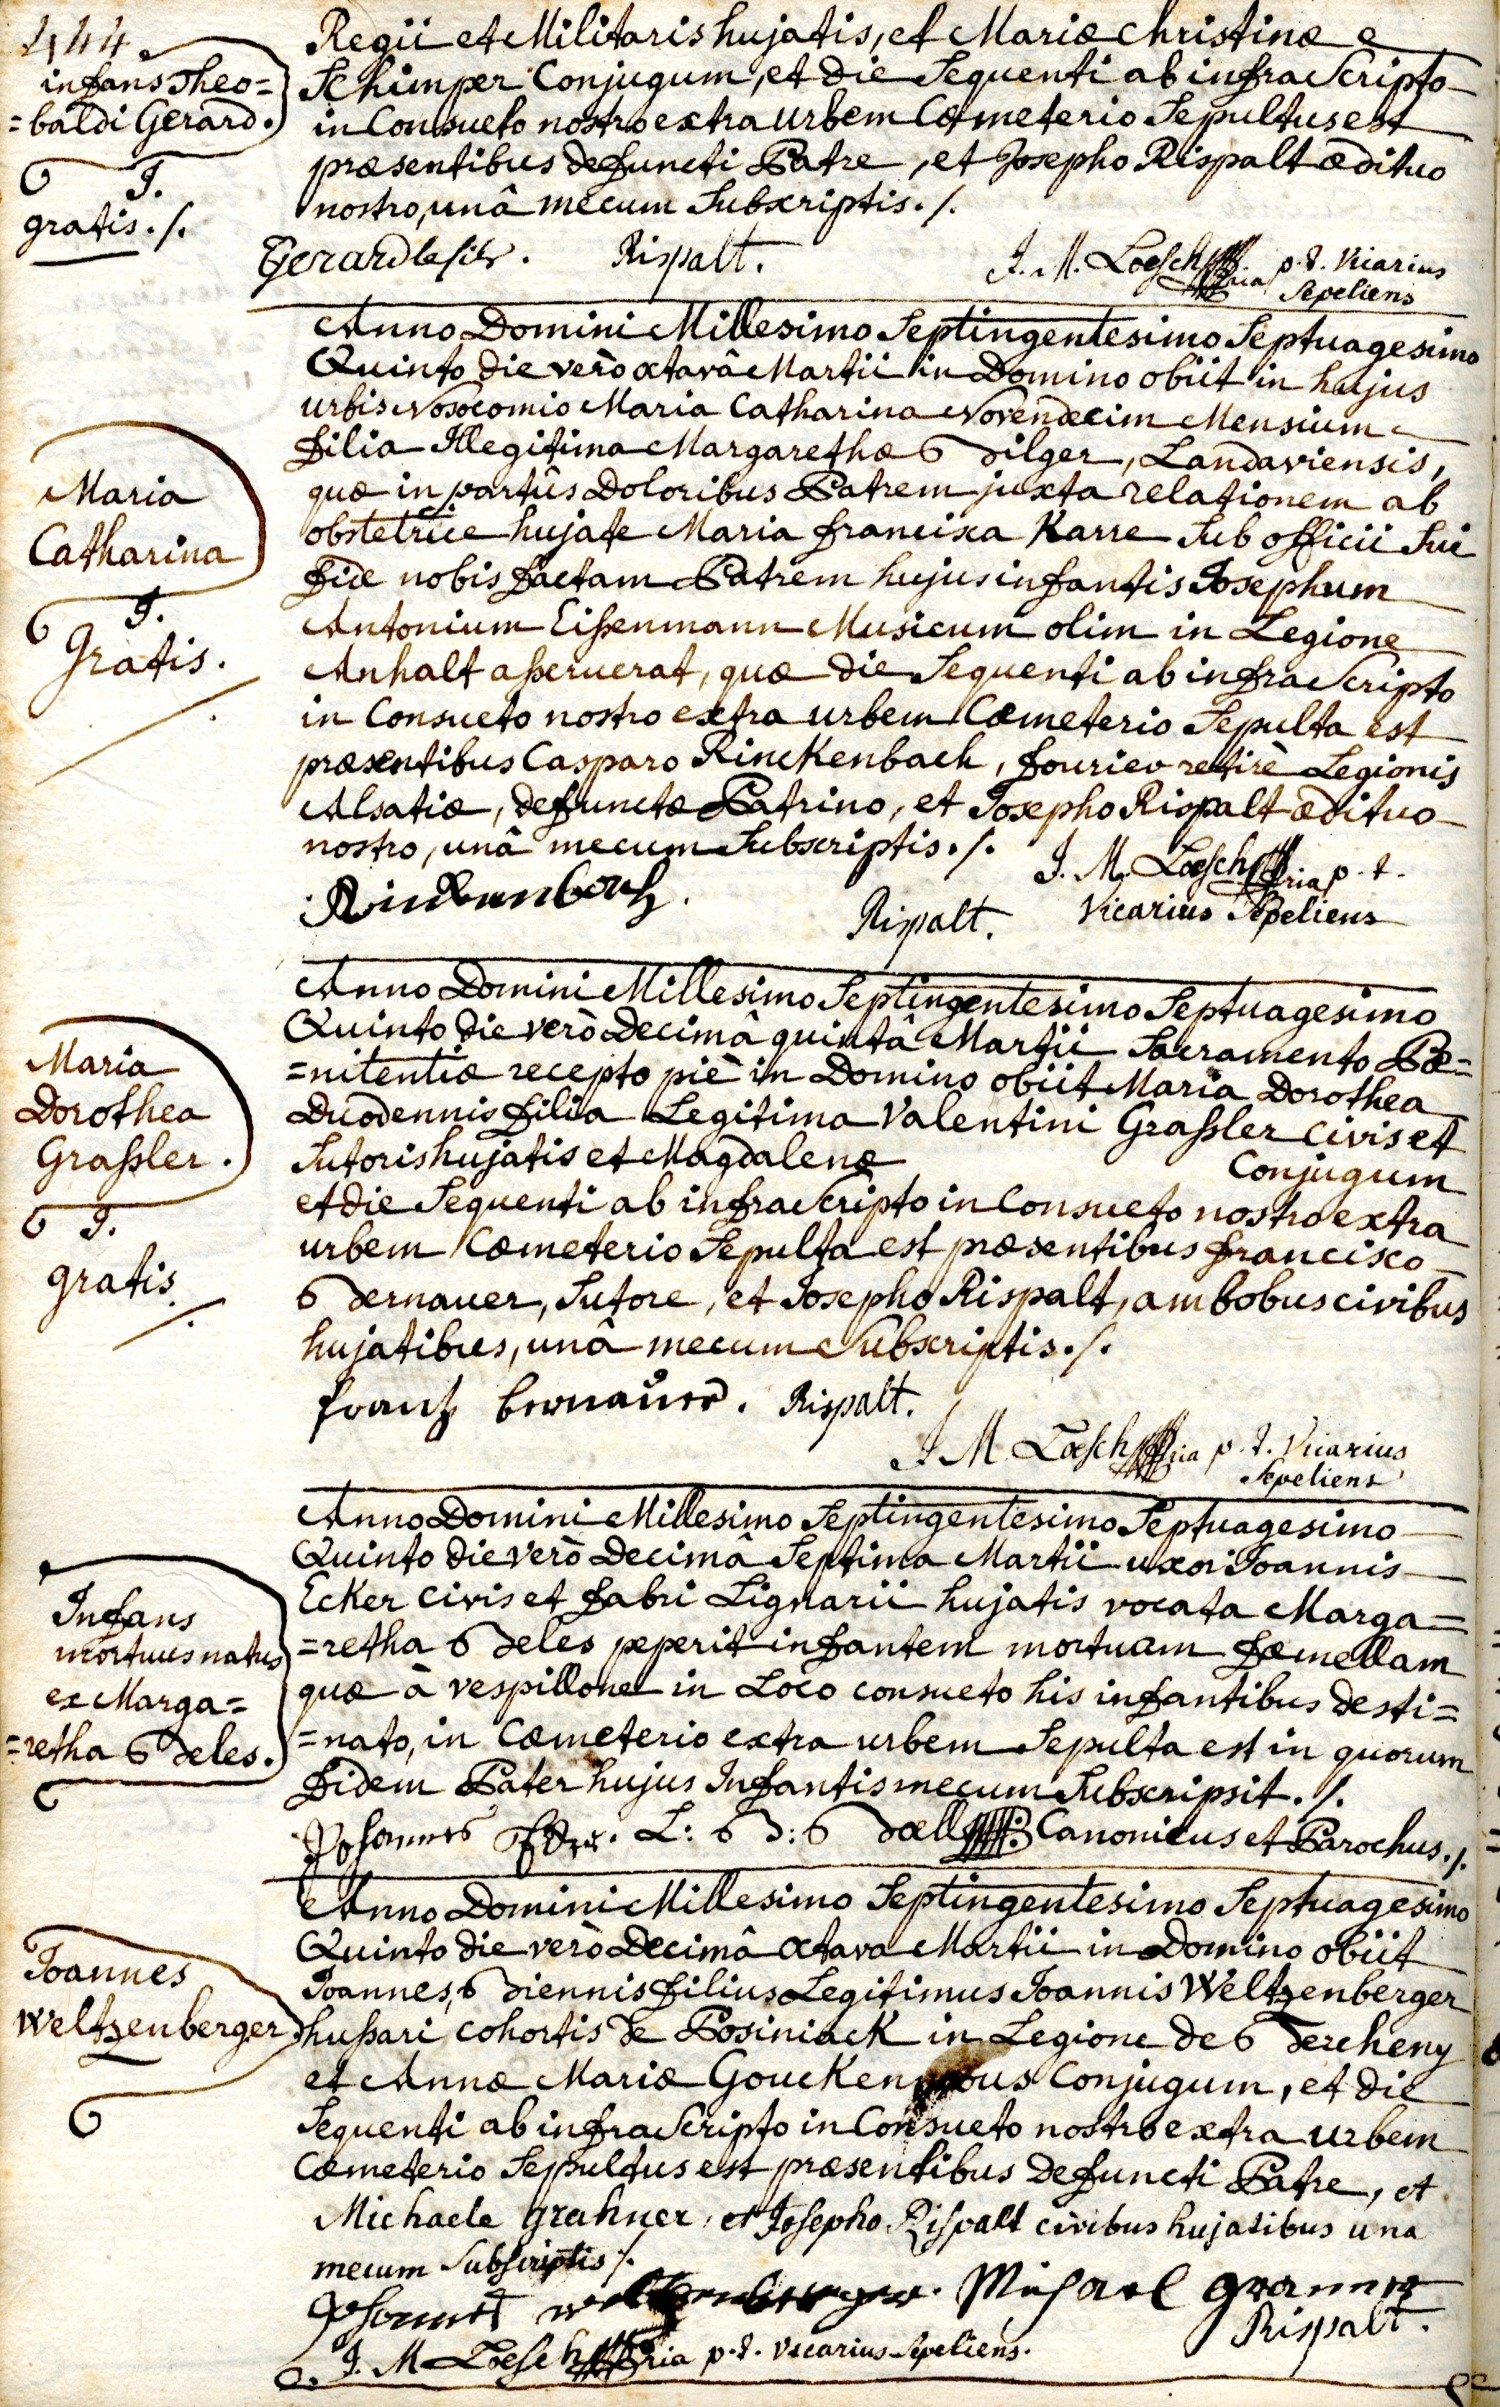 444
infans Theo=
=baldi Gerard.
T.
gratis ./.
Regii et Militaris hujatis, et Mariæ Christinæ
Schimper Conjugum, et die Sequenti ab infra Scripto
in Consueto nostro extra urbem Cœmeterio Sepultus est
præsentibus defuncti Patre, et Josepho Rispalt ædituo
nostro, unâ mecum Subscriptis ./.
Gerard le fils. Rispalt. J. M. Loesch p. t. Vicarius
Sepeliens
Maria
Catharina
T.
Gratis.
Anno Domini Millesimo Septingentesimo Septuagesimo
Quinto die verò octavâ Martii in Domino obiit in hujus
urbis Nosocomio Maria Catharina Novendecim Mensium
filia Illegitima Margarethæ Bilger, Landaviensis,
quæ in partûs Doloribus Patrem juxta relationem ab
obstetrice hujate Maria francisca Karre Sub officii Sui
fide nobis factam Patrem hujus infantis Josephum
Antonium Eissenmann Musicum olim in Legione
Anhalt asseruerat, quæ die Sequenti ab infra Scripto
in Consueto nostro extra urbem Cœmeterio Sepulta est
præsentibus Casparo Rinckenbach, fourier retirè Legionis
Alsatiæ, defunctæ Patrino, et Josepho Rispalt ædituo
nostro, unâ mecum Subscriptis ./.
J. M. Loesch p. t.
Rinckenbach. Rispalt. Vicarius Sepeliens
Maria
Dorothea
Grassler.
T.
gratis
Anno Domini Millesimo Septingentesimo Septuagesimo
Quinto die verò Decimâ quintâ Martii Sacramento Pœ=
=nitentiæ recepto piè in Domino obiit Maria Dorothea
Duodennis filia Legitima Valentini Grassler Civis et
Sutoris hujatis et Magdalenæ Conjugum
et die Sequenti ab infra Scripto in Consueto nostro extra
urbem Cœmeterio Sepulta est præsentibus francisco
Bernauer, Sutore, et Josepho Rispalt, ambobus civibus
hujatibus, unâ mecum Subscriptis ./.
frantz bernauer. Rispalt.
J M Loesch p. t. Vicarius
Sepeliens
Infans
mortuus natus
ex Marga=
=retha Beles.
Anno Domini Millesimo Septingentesimo Septuagesimo
Quinto die verò Decimâ Septima Martii uxor Joannis
Ecker Civis et fabri Lignarii hujatis vocata Marga=
=retha Beles peperit infantem mortuam fœmellam
quæ à vespillone in Loco consueto his infantibus desti=
=nato, in Cœmeterio extra urbem Sepulta est in quorum
fidem Pater hujus Infantis mecum Subscripsit ./.
Johannes Canonicus et Parochus ./.
Joannes
Weltzenberger
Anno Domini Millesimo Septingentesimo Septuagesimo
Quinto die verò Decimâ octava Martii in Domino obiit
Joannes, Biennis filius Legitimus Joannis Weltzenberger
hussari cohortis de Posiniack in Legione de Bercheny
et Annæ Mariæ Conjugum, et die
Sequenti ab infra Scripto in Consueto nostro extra urbem
Cœmeterio Sepultus est præsentibus defuncti Patre, et
Michaele Grahner, et Josepho Rispalt civibus hujatibus una
mecum Subscriptis ./.
Johannes Michael
Rispalt.
J. M Loesch p. t. Vicarius Sepeliens.